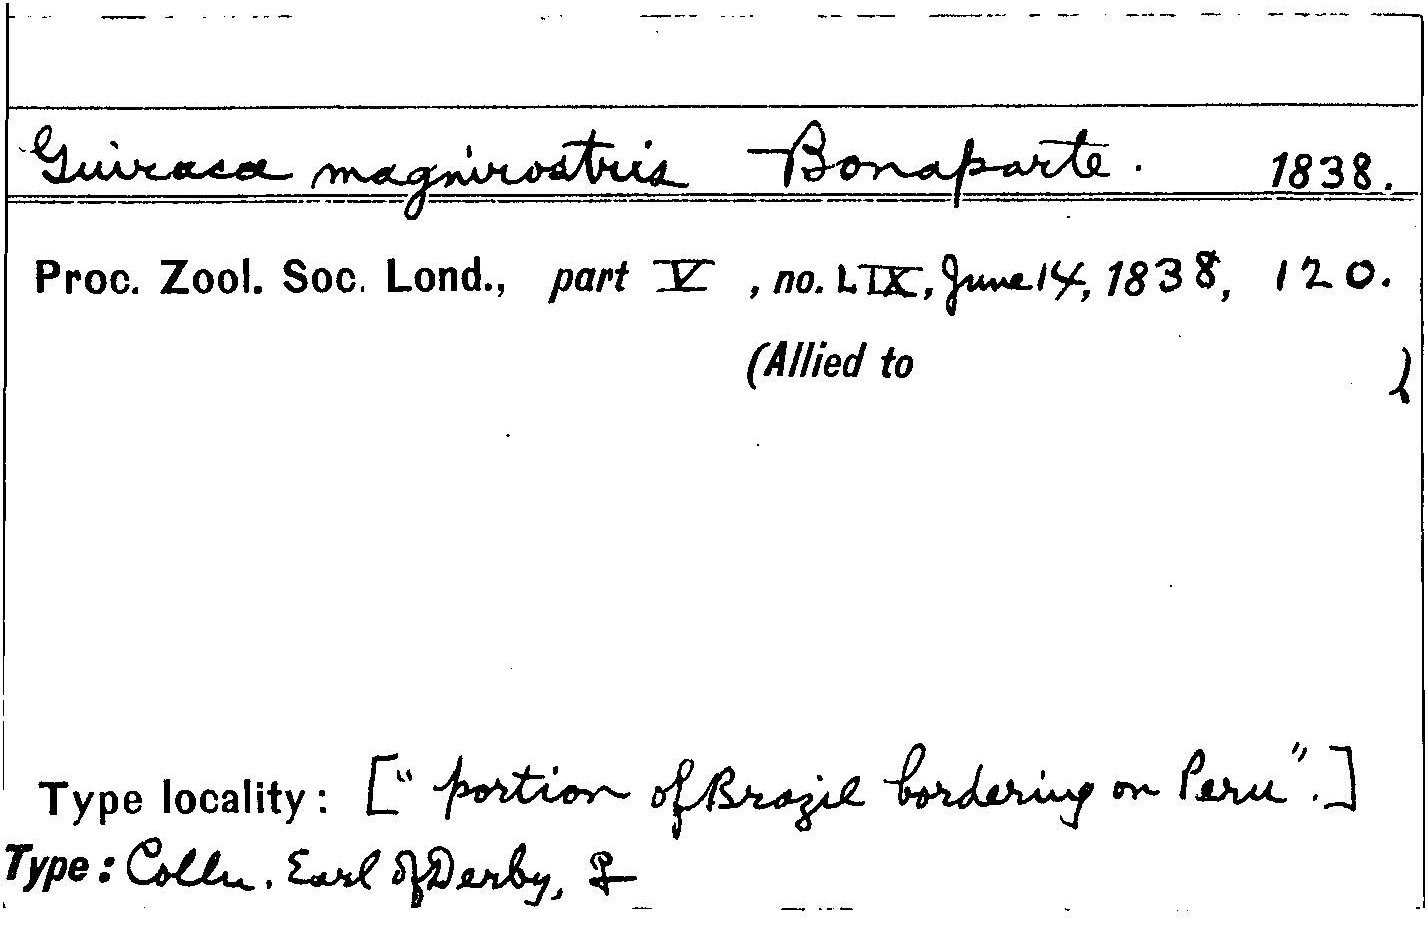 Guiraca magnirostris Bonaparte. 1838.
Proc. Zool. Soc. Lond., part V, no. LIX, June 14, 1838, 120.
(Allied to )
Type locality: ["portion of Brazil bordering on Peru".]
Type: Colln. Earl of Derby,